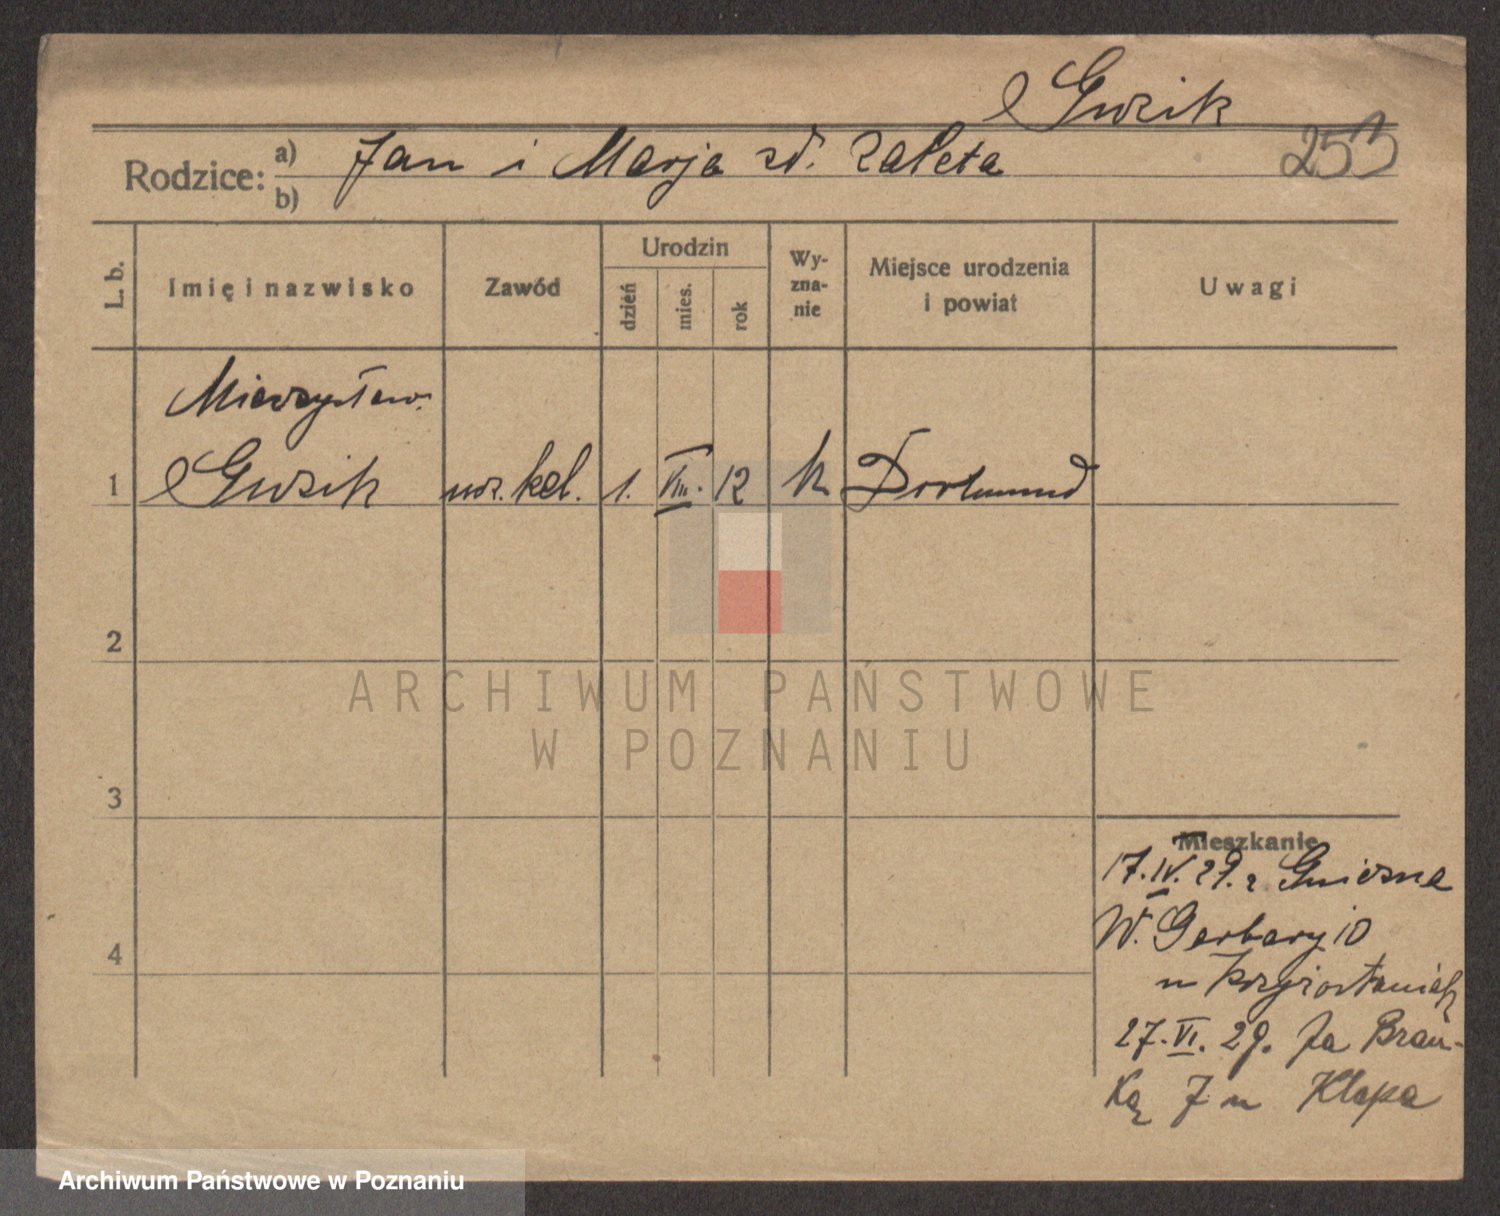 Guzik
253
Rodzice: a) Jan i Marja zd. Zaleta
b)
L. b.
Imię i nazwisko
Zawód
Urodzin
dzień
mies.
rok
Wy-
zna-
nie
Miejsce urodzenia
i powiat
Uwagi
Mieczysław
1 Guzik ucz. kol. 1. VIII. 12 k Dortmund
2
3
4
Mieszkanie
17.IV.29. z Gniezna
W. Garbary 10
u
27.VI.29. Za Bram-
ką 7 u Klapa
ARCHIWUM PAŃSTWOWE
W POZNANIU
Archiwum Państwowe w Poznaniu